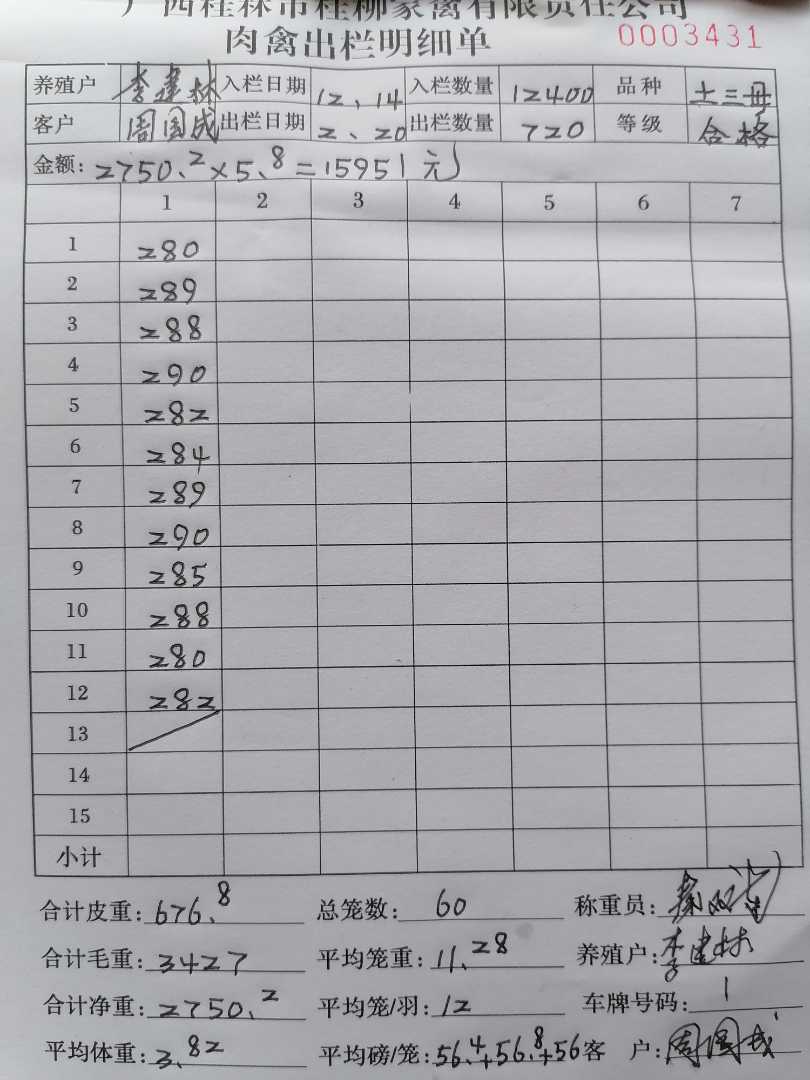 广西桂林市桂柳家禽有限责任公司
肉禽出栏明细单 0003431
养殖户 李建林 入栏日期 12、14 入栏数量 12400 品种 土三号
客户 周国成 出栏日期 2、20 出栏数量 720 等级 合格
金额: 2750.2×5.8=15951元
1 2 3 4 5 6 7
1 280
2 289
3 288
4 290
5 282
6 284
7 289
8 290
9 285
10 288
11 280
12 282
13
14
15
小计
合计皮重: 676.8 总笼数: 60 称重员:
合计毛重: 3427 平均笼重: 11.28 养殖户: 李建林
合计净重: 2750.2 平均笼/羽: 12 车牌号码: 1
平均体重: 3.82 平均磅/笼: 56.4+56.8+56 客 户: 周国成